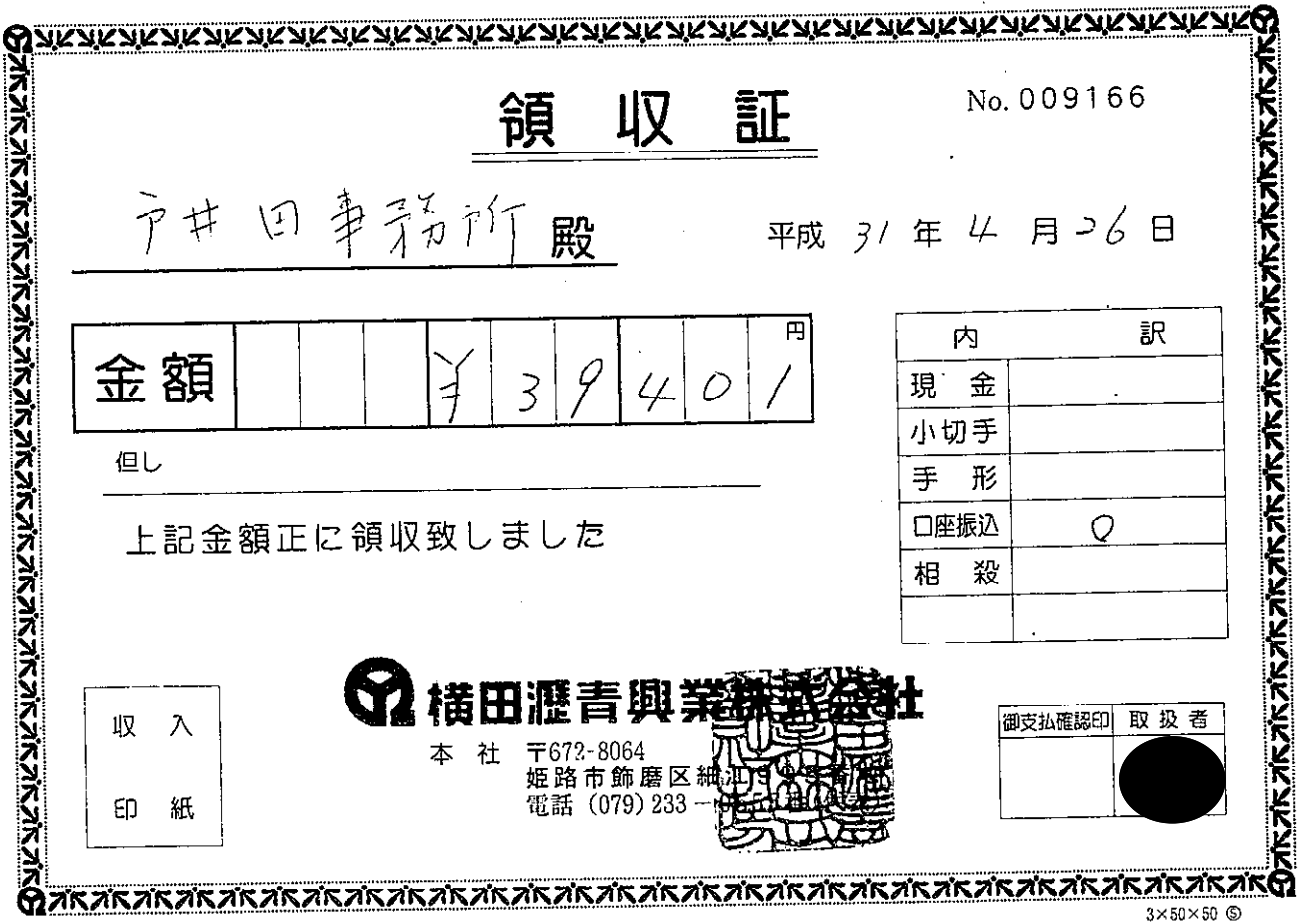 領収証
No. 009166
戸井田事務所 殿
平成 31 年 4 月 26 日
金額 ¥39401円
但し
上記金額正に領収致しました
内訳
現金
小切手
手形
口座振込 ○
相殺
収入
印紙
横田瀝青興業株式会社
本社 〒672-8064
姫路市飾磨区細江
電話 (079) 233-
御支払確認印 取扱者
3×50×50 ⑤